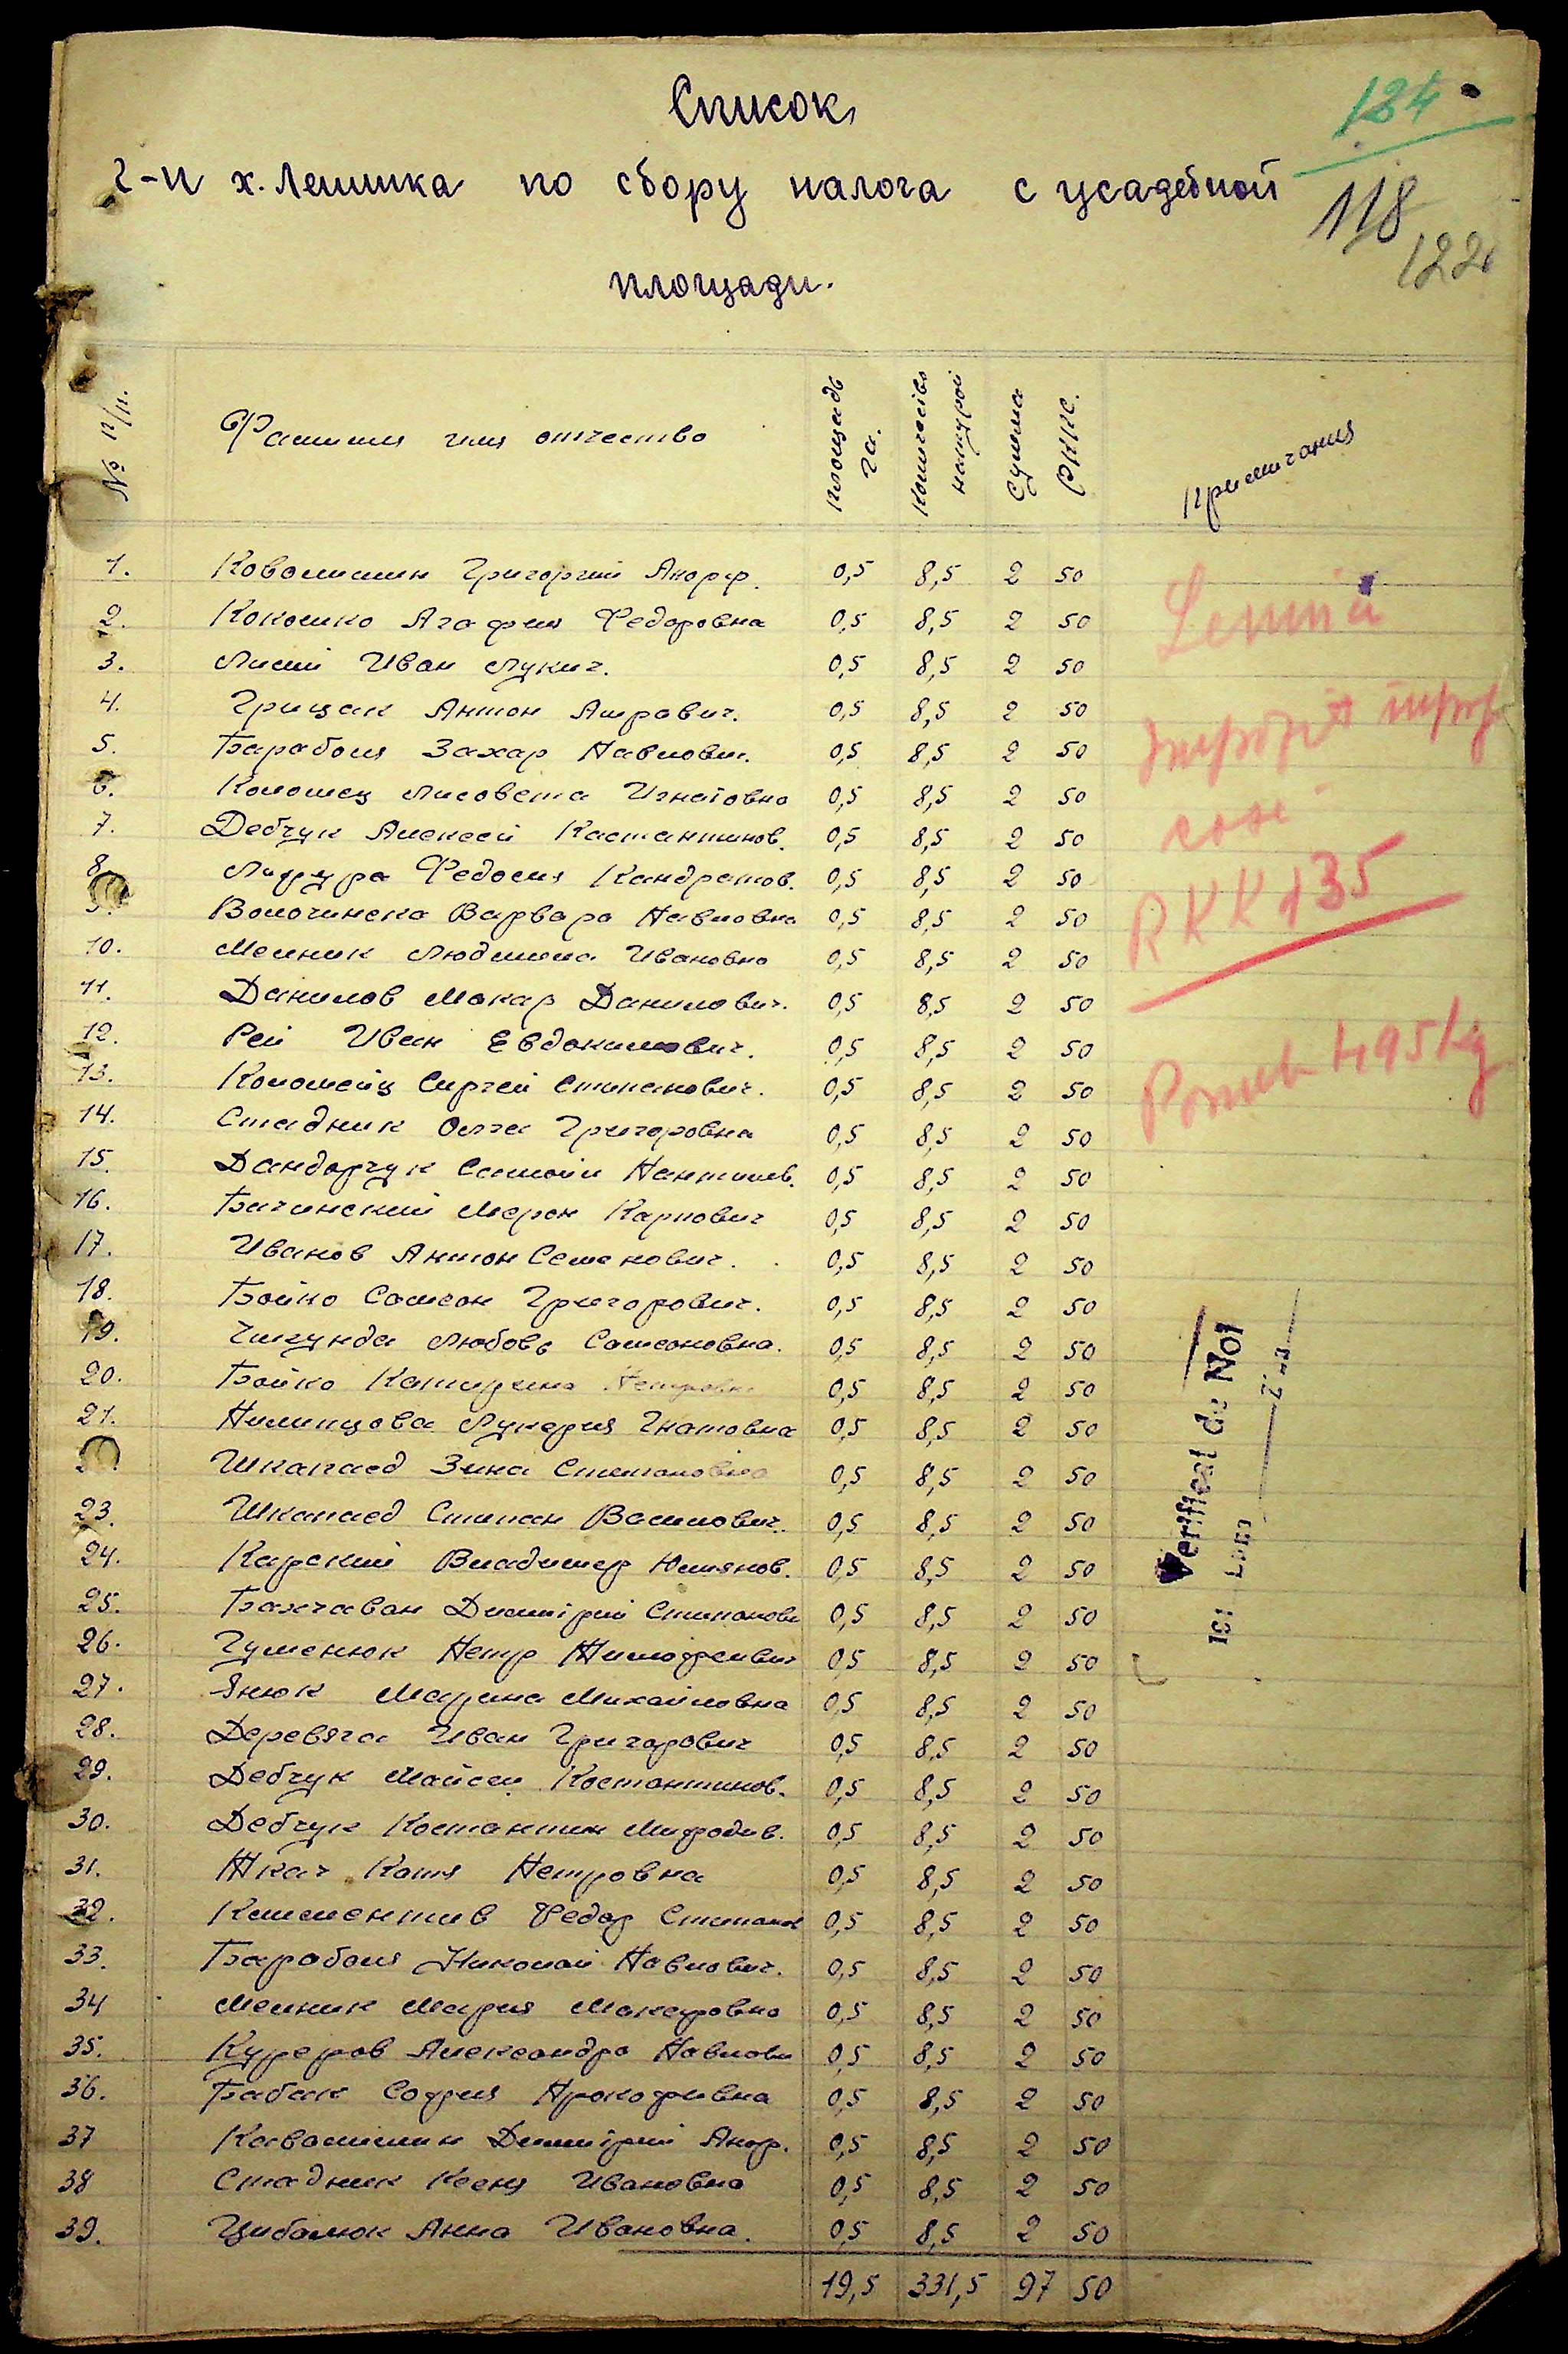 Список
184
г-н х. Лешика по сбору налога с усадебной
118
122
площади.
№ п/п. Фамилия имя отчество Площадь га. Количество натурой Сумма РККС. Примечания
1. Ковалишин Григорий Анофр. 0,5 8,5 2 50
2. Кокошко Агафия Федоровна 0,5 8,5 2 50
3. Лисий Иван Лукич. 0,5 8,5 2 50
4. Грицак Антон 0,5 8,5 2 50
5. Бараболя Захар Павлович. 0,5 8,5 2 50
6. Коломец Лисовета Игнатовна 0,5 8,5 2 50
7. Дебчук Алексей Кастантинов. 0,5 8,5 2 50
8. Федосия Кандратов. 0,5 8,5 2 50
Волочинска Варвара Павловна 0,5 8,5 2 50
10. Мелник Людмила Ивановна 0,5 8,5 2 50
11. Данилов Макар Данилович. 0,5 8,5 2 50
12. Рей Иван Евдокимович. 0,5 8,5 2 50
13. Коломейц Сиргей Стипанович. 0,5 8,5 2 50
14. Стадник Олга Григоровна 0,5 8,5 2 50
15. Дандарчук Самойл Пантилев. 0,5 8,5 2 50
16. Бачинский Мерон Карпович 0,5 8,5 2 50
17. Иванов Антон Семенович. 0,5 8,5 2 50
18. Бойко Самсон Григорович. 0,5 8,5 2 50
19. Чигунда Любовь Самсоновна. 0,5 8,5 2 50
20. Бойко Катирина Петровна 0,5 8,5 2 50
21. Пилипцова Лукерия Гнатовна 0,5 8,5 2 50
Шкапаед Зина Стипановна 0,5 8,5 2 50
23. Шкапаед Стипан Василович. 0,5 8,5 2 50
24. Карский Владимер 0,5 8,5 2 50
25. Бахчаван Дмитрий Стипанови 0,5 8,5 2 50
26. Гуменюк Петр Тимофеивич 0,5 8,5 2 50
27. Янюк Марина Михайловна 0,5 8,5 2 50
28. Деревяга Иван Григорович 0,5 8,5 2 50
29. Дебчук Мойсей Костантинов. 0,5 8,5 2 50
30. Дебчук Костантин Мифодив. 0,5 8,5 2 50
31. Ткач Катя Петровна 0,5 8,5 2 50
32. Климентив Федор Стипанов 0,5 8,5 2 50
33. Бараболя Николай Павлович. 0,5 8,5 2 50
34 Мелник Мария Макаровна 0,5 8,5 2 50
35. Александра Павлови 0,5 8,5 2 50
36. Бабак София Прокофивна 0,5 8,5 2 50
37 Кавалишин Дмитрий Аноф. 0,5 8,5 2 50
38 Стадник Ксеня Ивановна 0,5 8,5 2 50
39. Цибалюк Анна Ивановна. 0,5 8,5 2 50
19,5 331,5 97 50
RKK 135
495 kg
Verificat de Noi